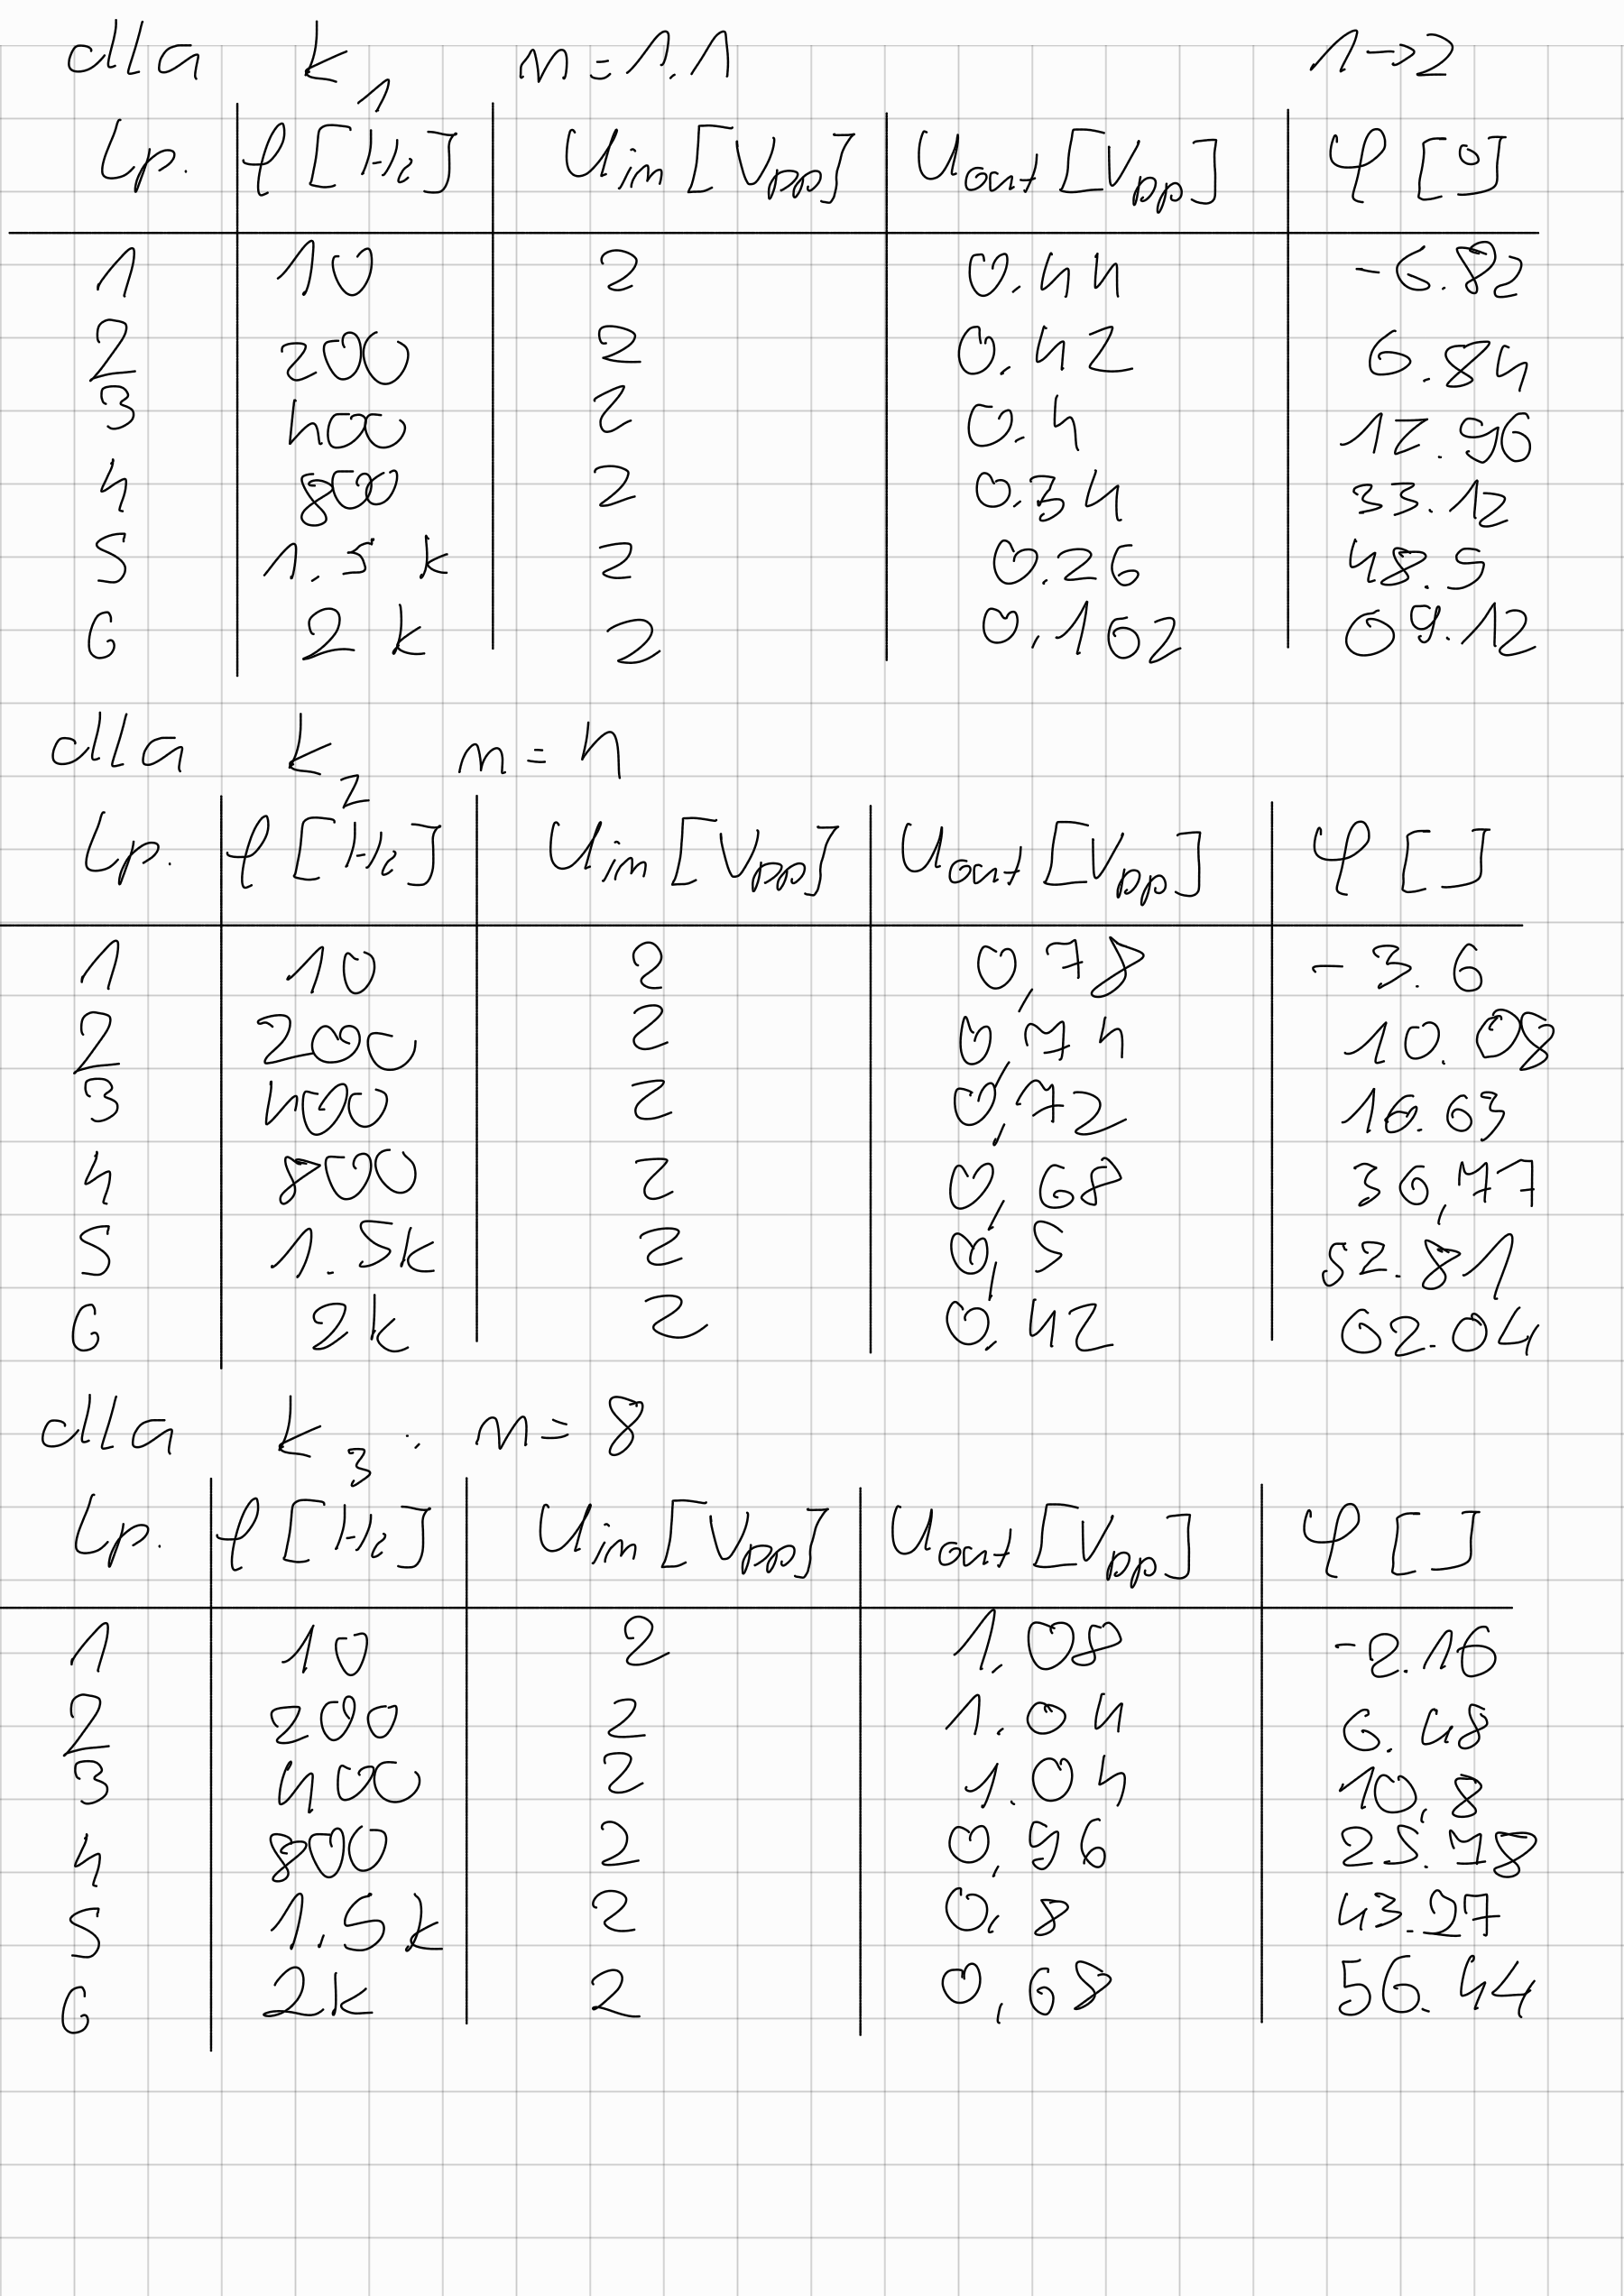 dla k1 n=1.1 1→2
Lp. f [Hz] Uin [Vpp] Uout [Vpp] φ [°]
1 10 2 0.44 -6.82
2 200 2 0.42 6.84
3 400 2 0.4 12.96
4 800 2 0.34 33.12
5 1.5 k 2 0.26 48.5
6 2 k 2 0.162 69.12
dla k2 n=4
Lp. f [Hz] Uin [Vpp] Uout [Vpp] φ []
1 10 2 0,78 -3.6
2 200 2 0,74 10.08
3 400 2 0,72 16.63
4 800 2 0,68 36,77
5 1.5k 2 0,5 52.81
6 2k 2 0.42 62.04
dla k3: n=8
Lp. f [Hz] Uin [Vpp] Uout [Vpp] φ []
1 10 2 1.08 -2.16
2 200 2 1.04 6.48
3 400 2 1.04 10,8
4 800 2 0,96 25.78
5 1,5k 2 0,8 43.27
6 2k 2 0,68 56.44